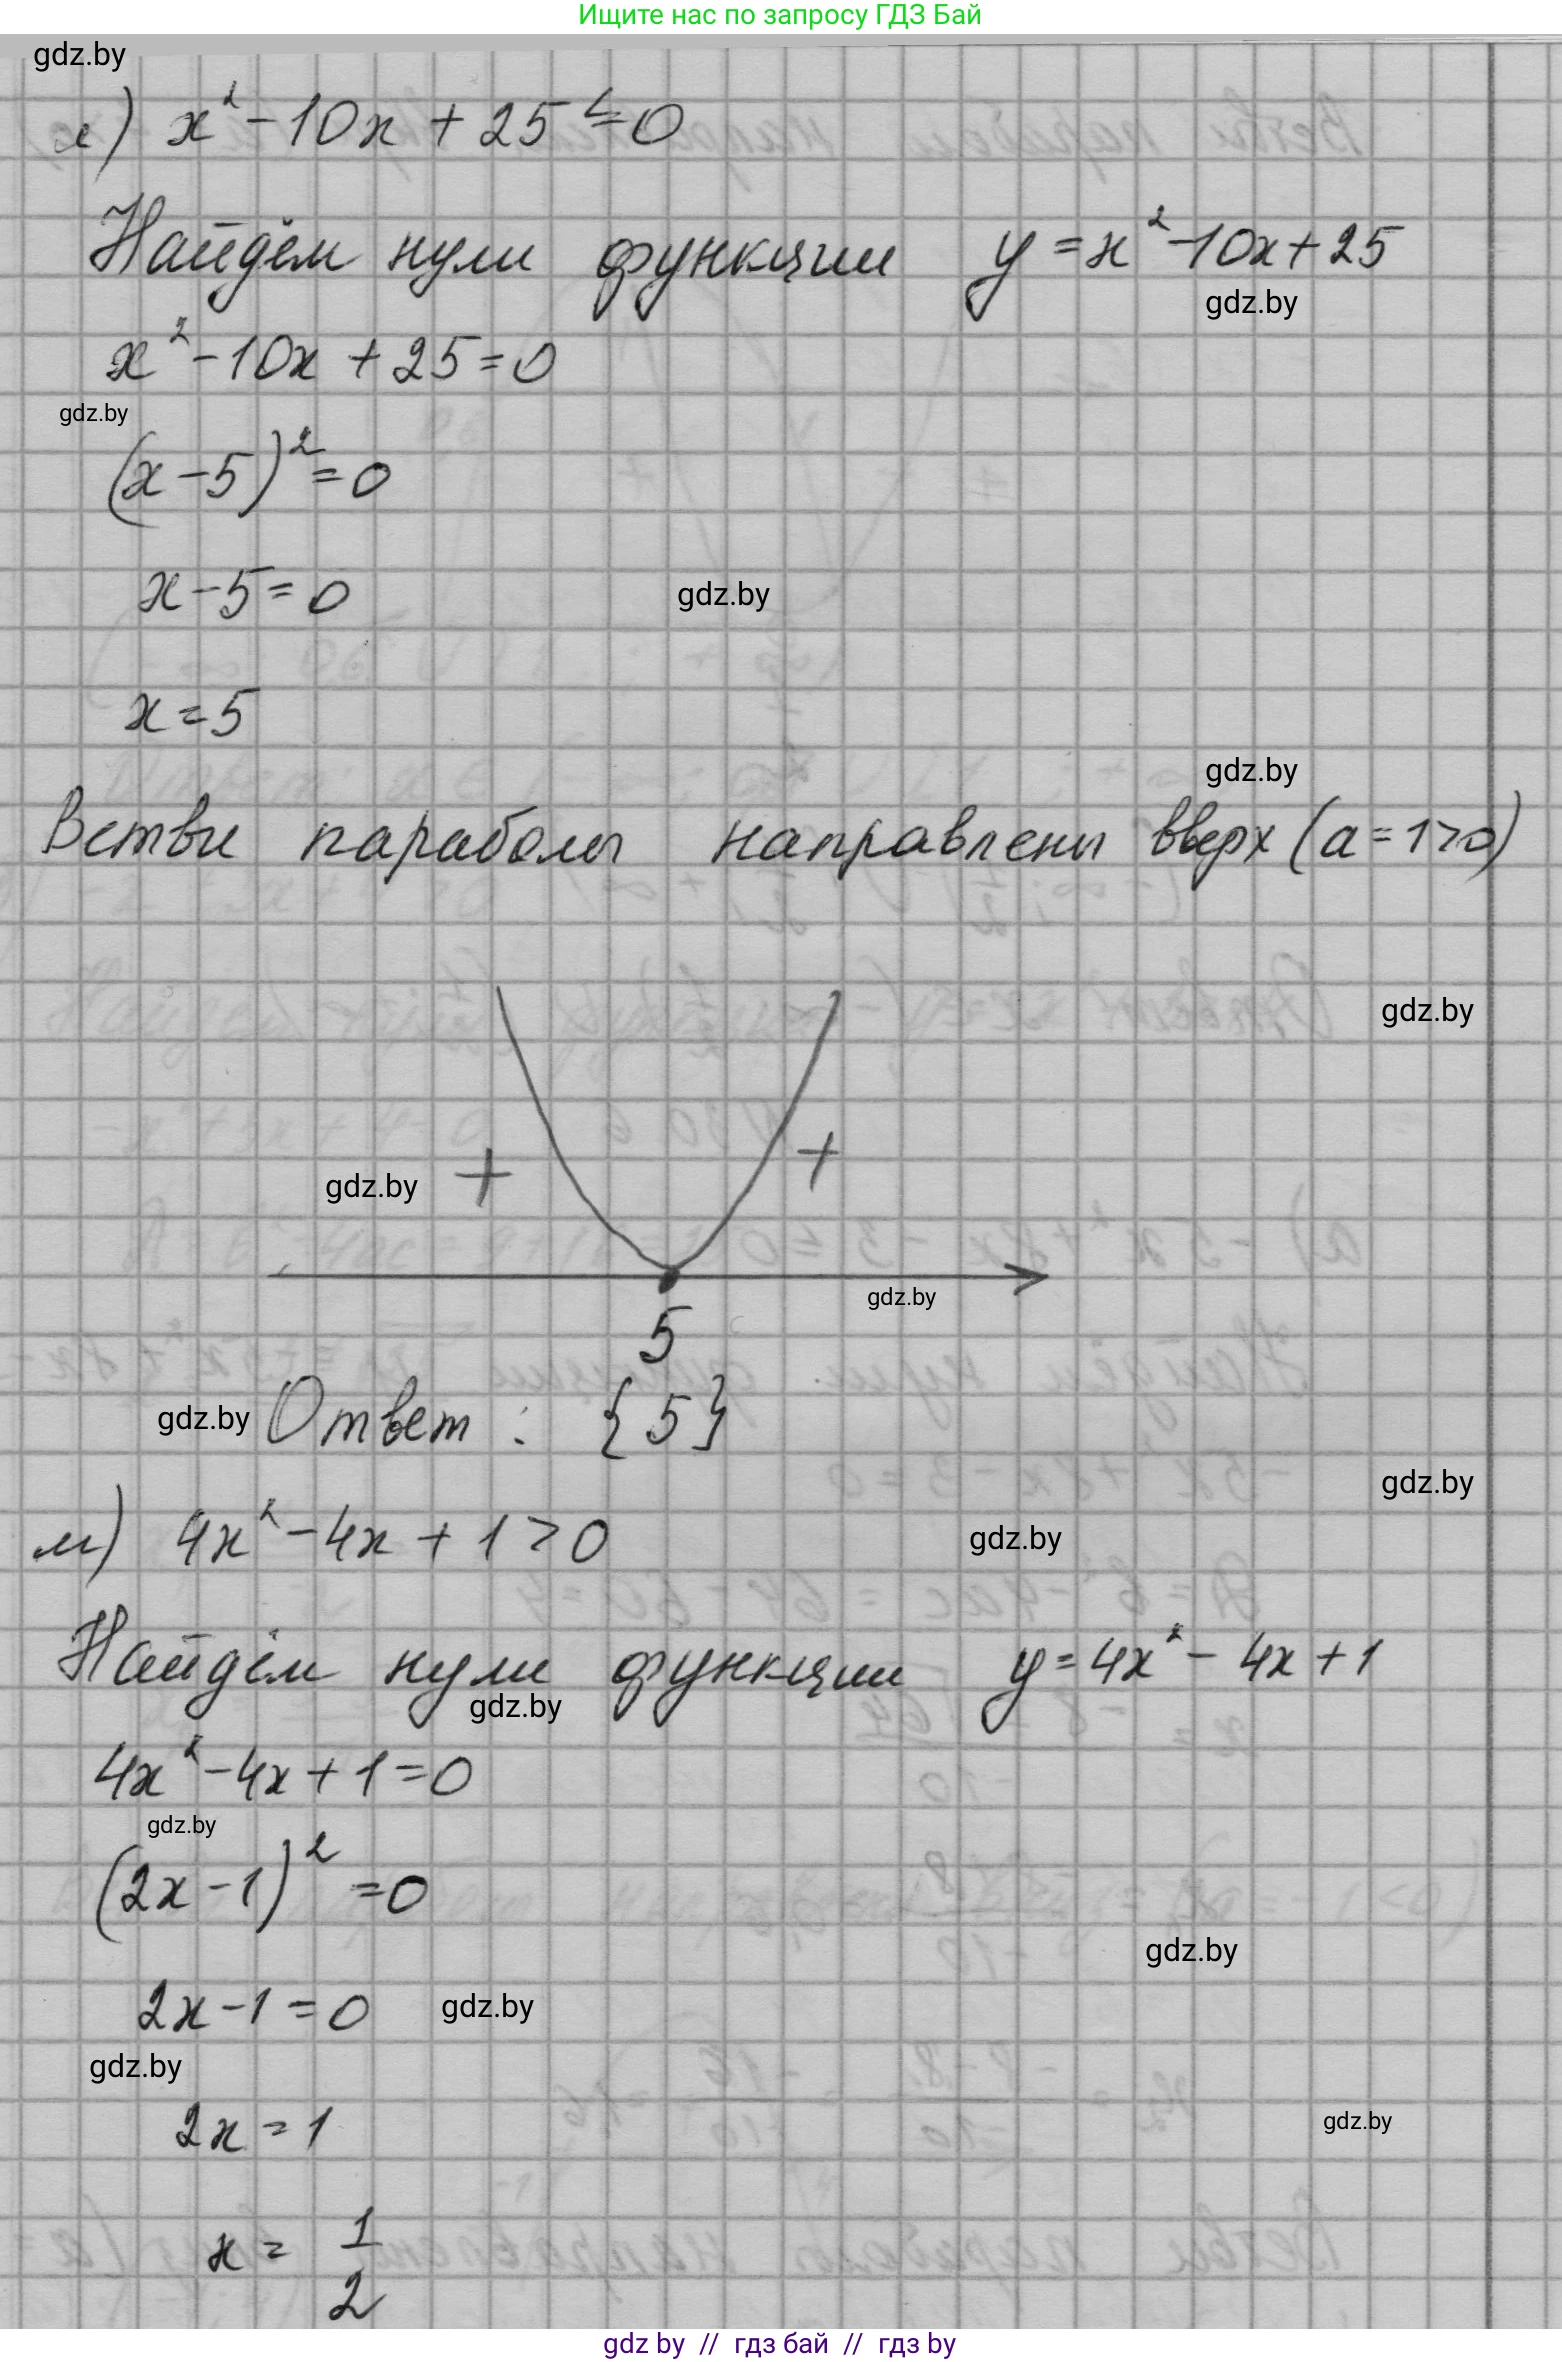 Ищите нас по запросу ГДЗ Бай
gdz.by
л) x² - 10x + 25 ≤ 0
Найдём нули функции y = x² - 10x + 25
gdz.by
x² - 10x + 25 = 0
gdz.by
(x - 5)² = 0
x - 5 = 0
gdz.by
x = 5
gdz.by
Ветви параболы направлены вверх (a = 1 > 0)
gdz.by
+ +
gdz.by
gdz.by
5
gdz.by Ответ : {5}
gdz.by
м) 4x² - 4x + 1 > 0
gdz.by
Найдём нули функции y = 4x² - 4x + 1
gdz.by
4x² - 4x + 1 = 0
gdz.by
(2x - 1)² = 0
gdz.by
2x - 1 = 0
gdz.by
gdz.by
2x = 1
gdz.by
x = 1/2
gdz by // гдз бай // гдз by